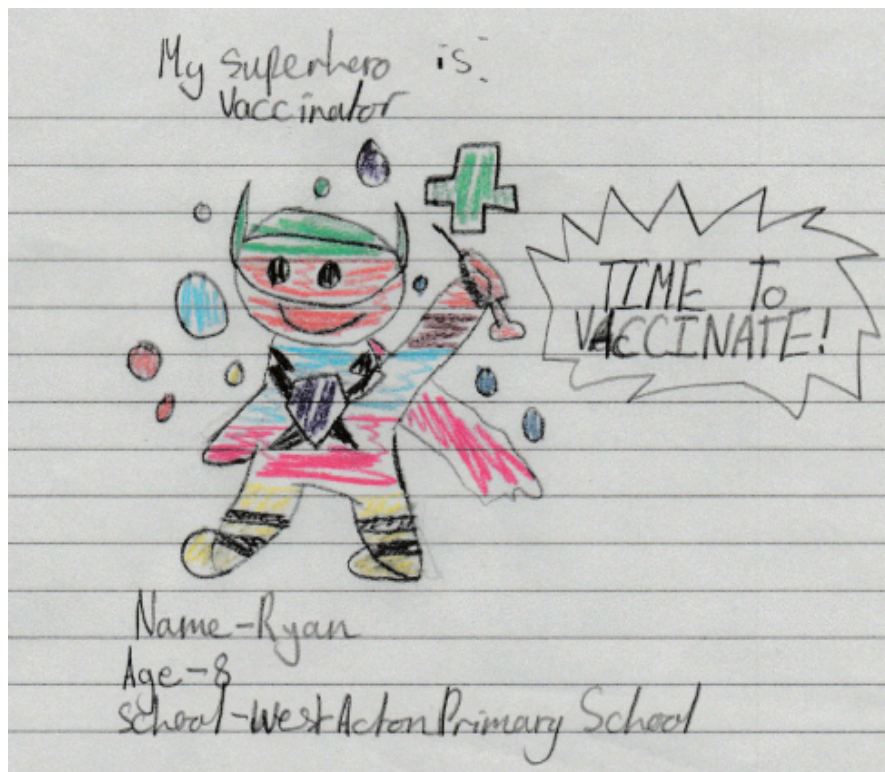 My superhero is:
Vaccinator
TIME To
VACCINATE!
Name-Ryan
Age-8
School-West Acton Primary School